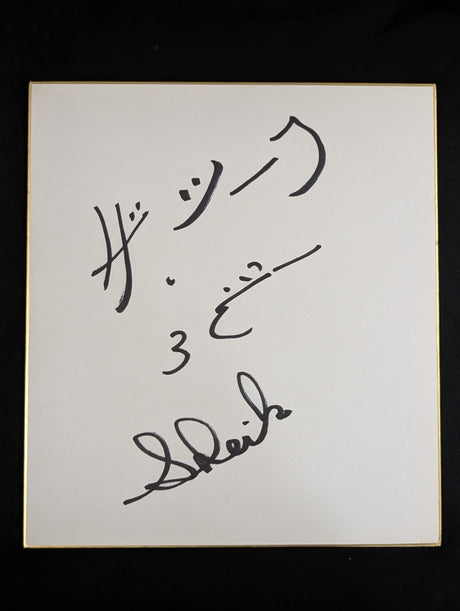 ザ・シーク
3
Sheik